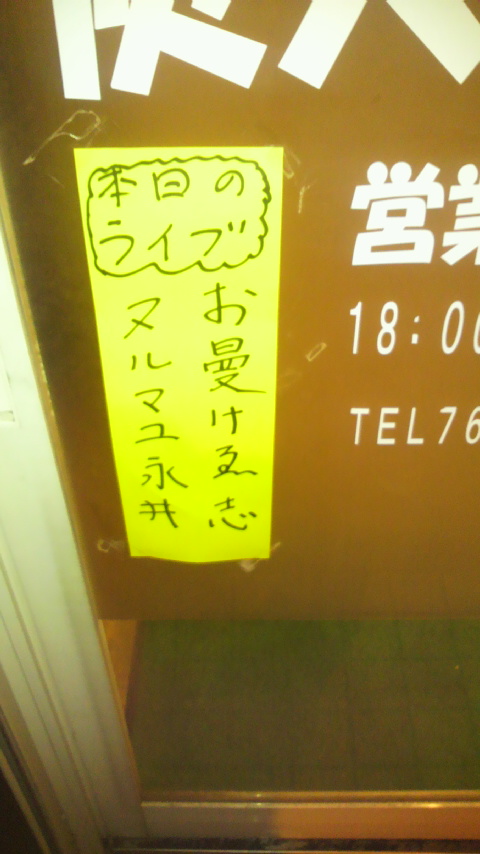 本日の
ライブ
お曼けゑ志
ヌルマユ永井
営業
18:00
TEL76